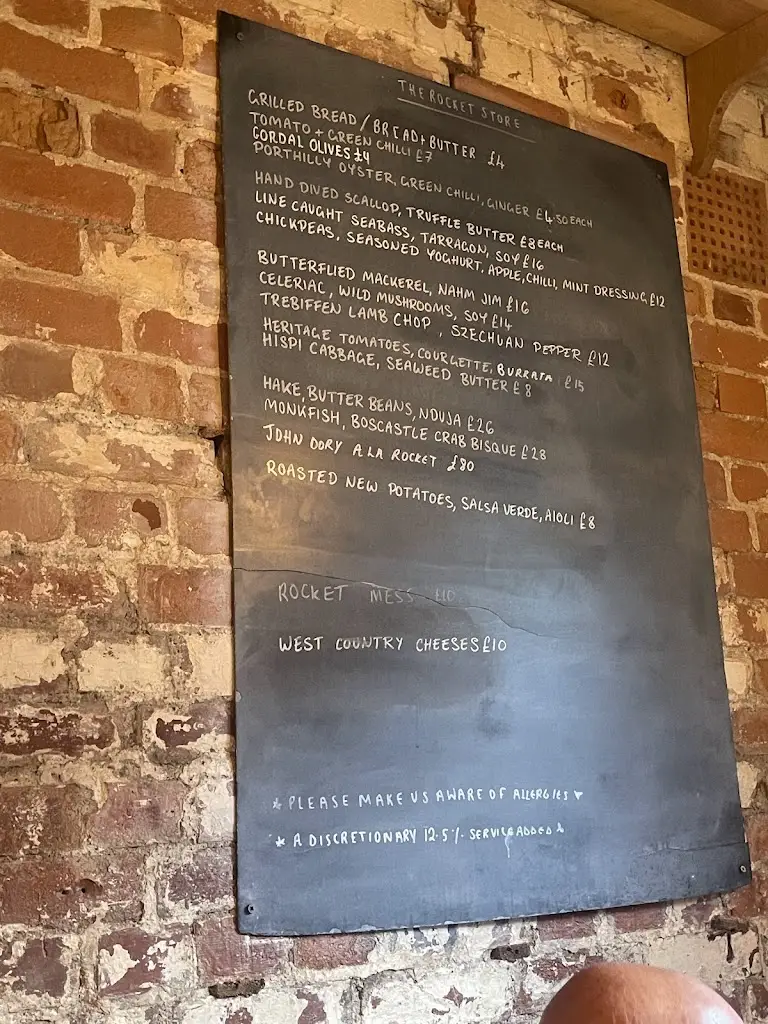 THE ROCKET STORE
GRILLED BREAD / BREAD + BUTTER £4
TOMATO + GREEN CHILLI £7
GORDAL OLIVES £4
PORTHILLY OYSTER, GREEN CHILLI, GINGER £4.50 EACH
HAND DIVED SCALLOP, TRUFFLE BUTTER £8 EACH
LINE CAUGHT SEABASS, TARRAGON, SOY £16
CHICKPEAS, SEASONED YOGHURT, APPLE, CHILLI, MINT DRESSING £12
BUTTERFLIED MACKEREL, NAHM JIM £16
CELERIAC, WILD MUSHROOMS, SOY £14
TREBIFFEN LAMB CHOP, SZECHUAN PEPPER £12
HERITAGE TOMATOES, COURGETTE, BURRATA £15
HISPI CABBAGE, SEAWEED BUTTER £8
HAKE, BUTTER BEANS, NDUJA £26
MONKFISH, BOSCASTLE CRAB BISQUE £28
JOHN DORY A LA ROCKET £80
ROASTED NEW POTATOES, SALSA VERDE, AIOLI £8
ROCKET MESS £10
WEST COUNTRY CHEESES £10
* PLEASE MAKE US AWARE OF ALLERGIES *
* A DISCRETIONARY 12.5% SERVICE ADDED *